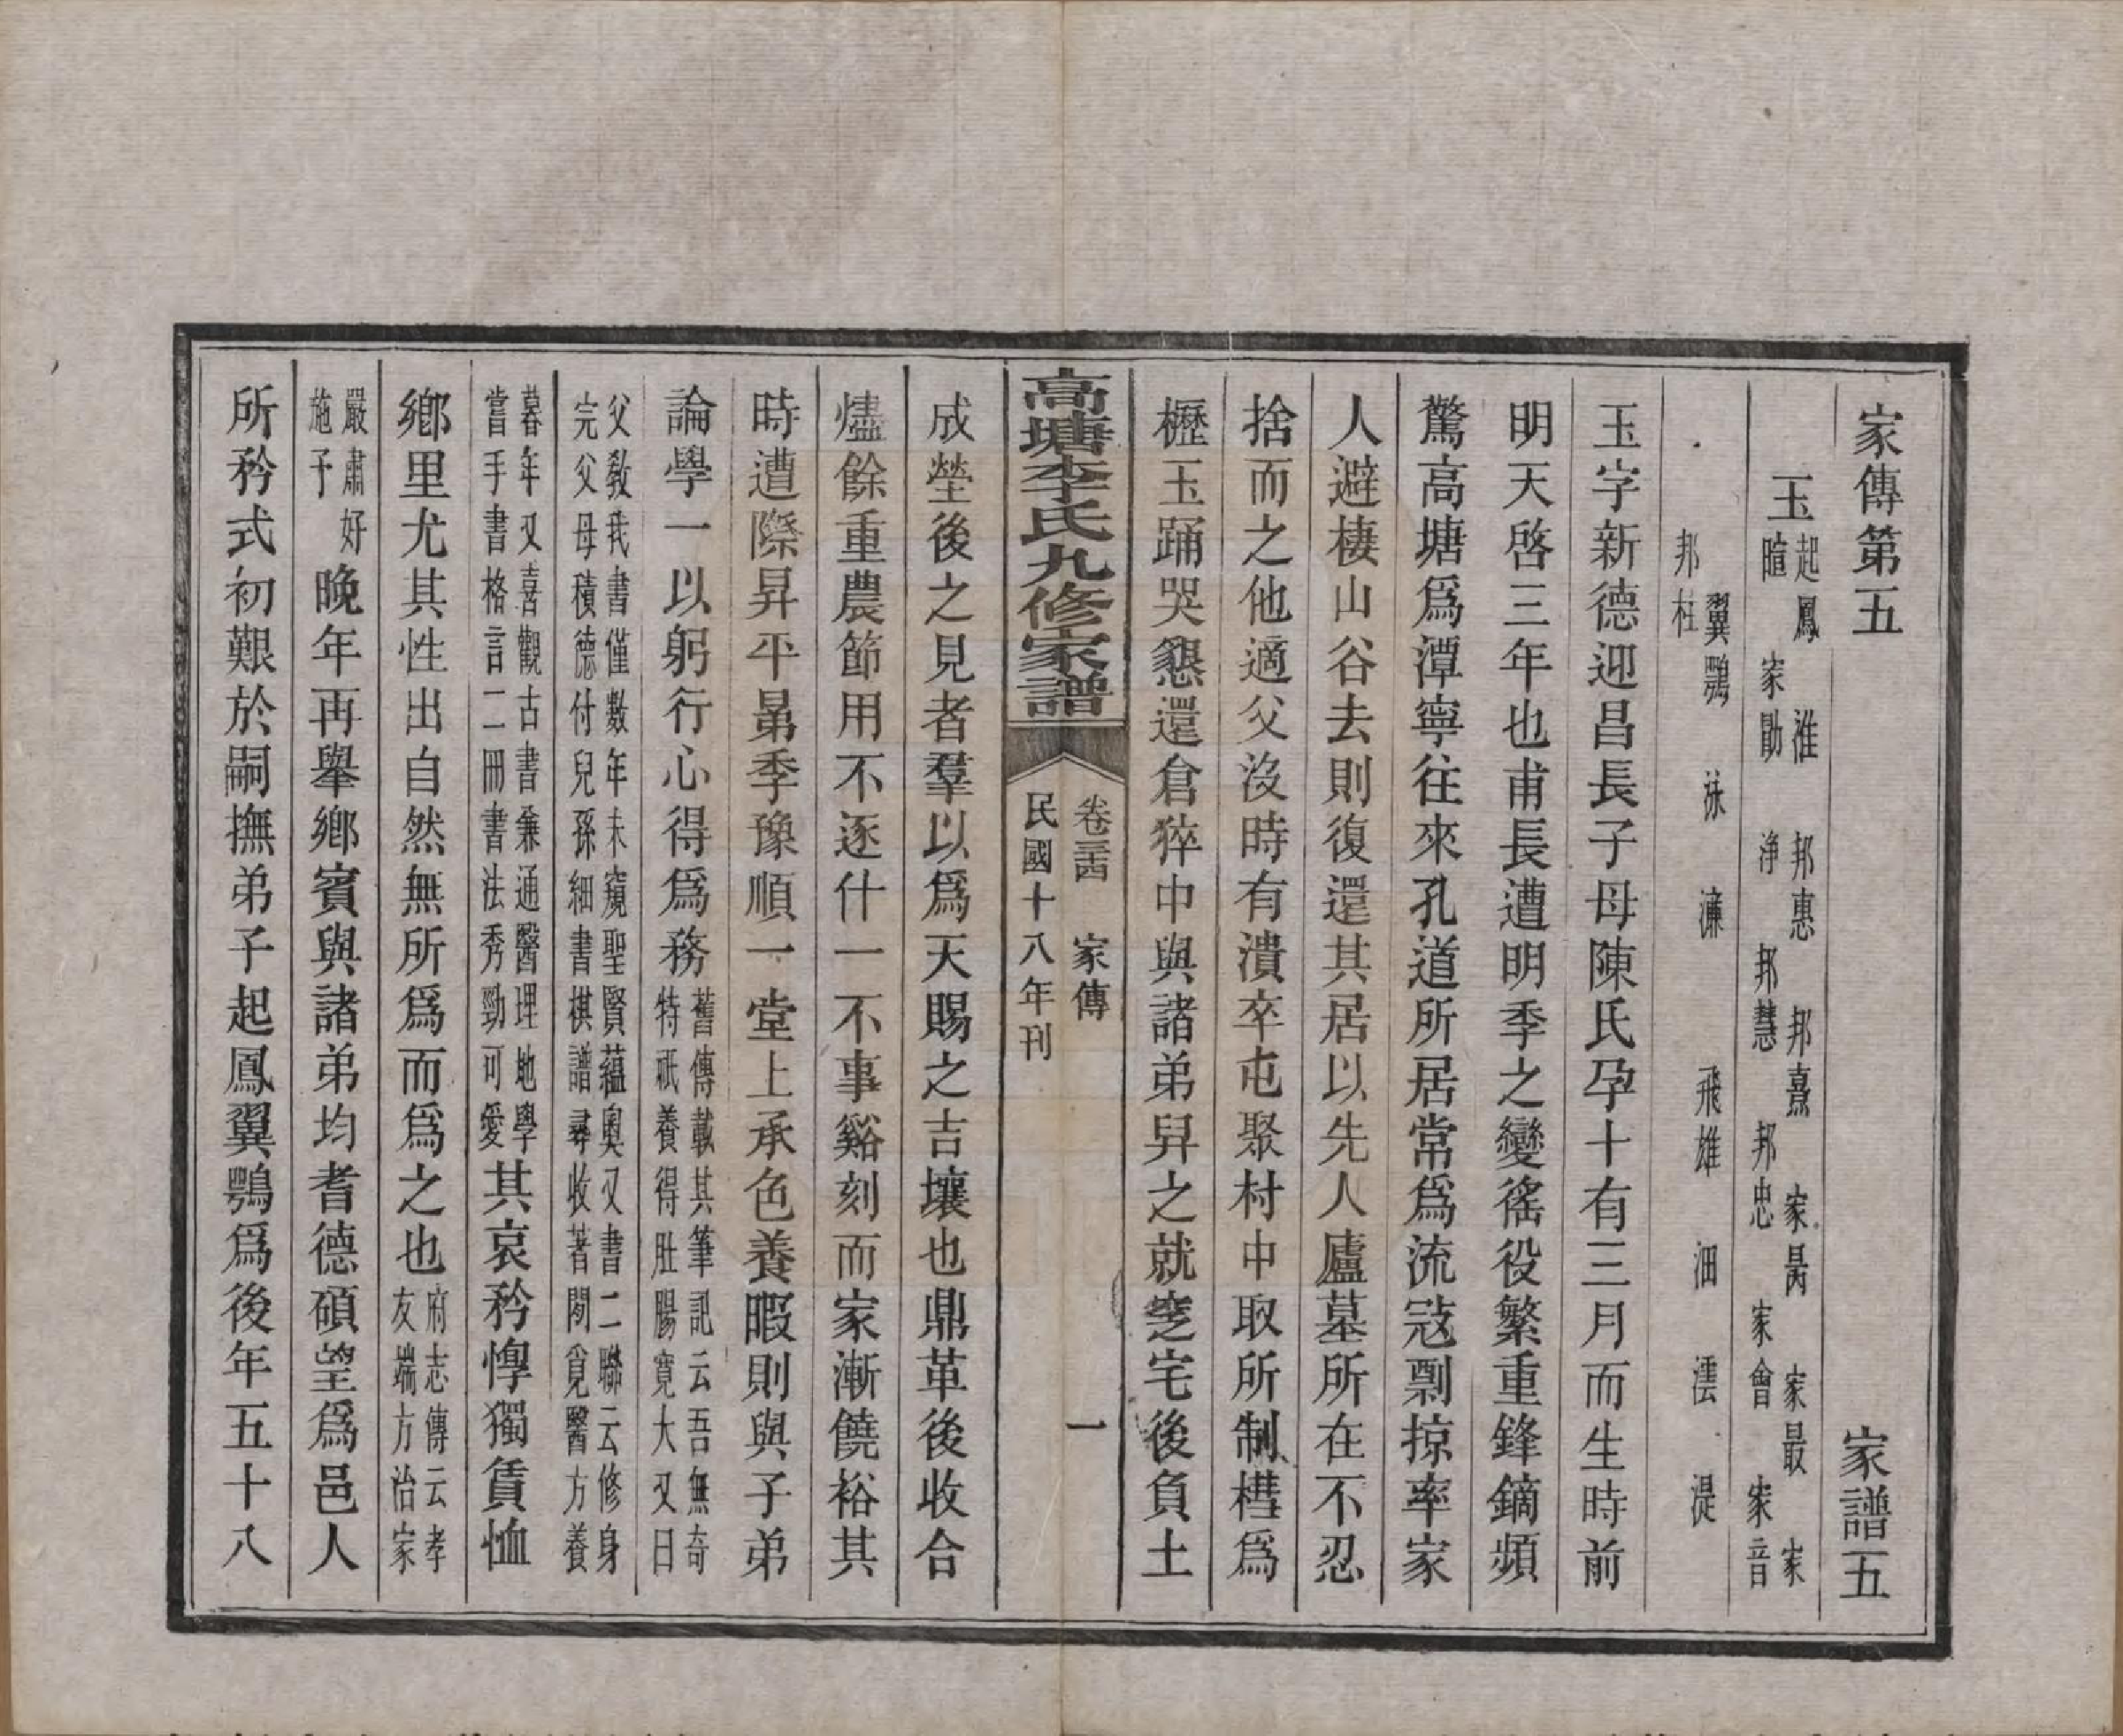 家傳第五 家譜五
玉 起鳳 淮 邦惠 邦熹 家昺 家最 家
暄 家勛 淨 邦慧 邦忠 家會 家音
翼鶚 祢 濂 飛雄 沺 澐 湜
邦柱
玉字新德迎昌長子母陳氏孕十有三月而生時前
明天啓三年也甫長遭明季之變徭役繁重鋒鏑頻
驚高塘爲潭寧往來孔道所居常爲流寇剽掠率家
人避棲山谷去則復還其居以先人廬墓所在不忍
捨而之他適父沒時有潰卒屯聚村中取所制槥爲
櫪玉踊哭懇還倉猝中與諸弟舁之就窆宅後負土
高塘李氏九修家譜
卷三十四 家傳 一
民國十八年刊
成塋後之見者羣以爲天賜之吉壤也鼎革後收合
燼餘重農節用不逐什一不事谿刻而家漸饒裕其
時遭際昇平曑季豫順一堂上承色養暇則與子弟
論學一以躬行心得爲務 舊傳載其筆記云吾無奇
特祇養得肚腸寬大又曰
父敎我書僅數年未窺聖賢蘊奧又書二聯云修身
完父母積德付兒孫細書棋譜尋收著閒覓醫方養
暮年又喜觀古書兼通醫理地學
嘗手書格言二冊書法秀勁可愛 其哀矜惸獨賃恤
鄉里尤其性出自然無所爲而爲之也 府志傳云孝
友端方治家
嚴肅好
施予 晚年再舉鄉賓與諸弟均耆德碩望爲邑人
所矜式初艱於嗣撫弟子起鳳翼鶚爲後年五十八